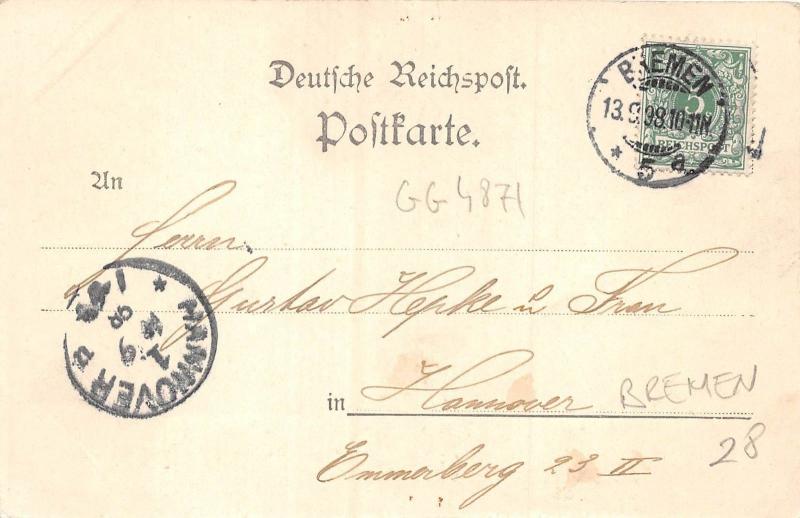 Deutsche Reichspost.
Postkarte.
BREMEN
13.9.98.10-11N.
* 5 a *
5
REICHSPOST
An
GG 4871
Herrn
Gustav Hepke u Frau
HANNOVER
in Hannover
BREMEN
Emmerberg 23 II
28